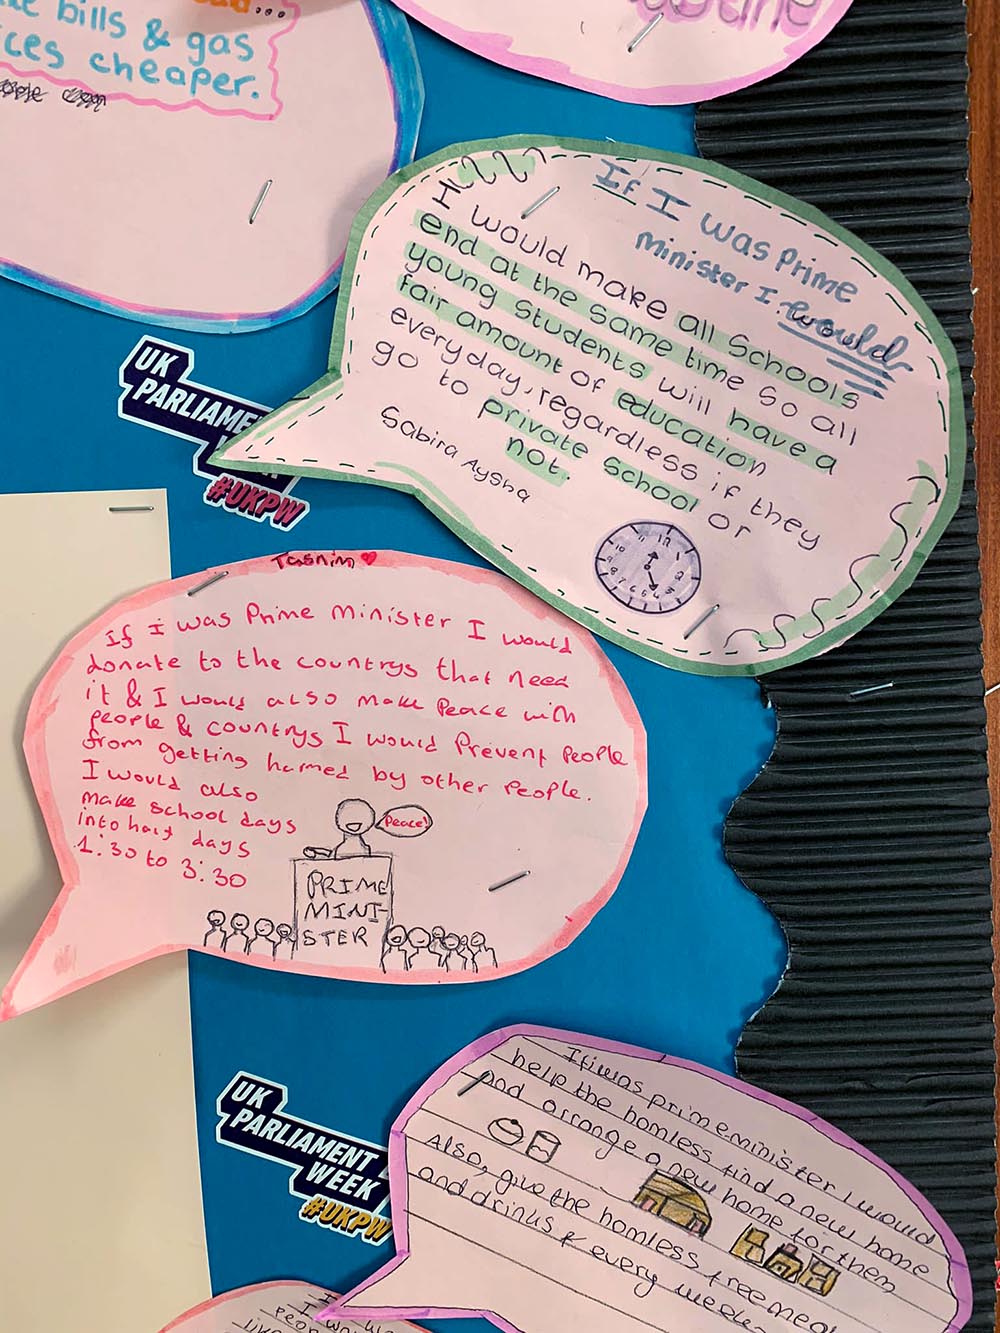 bills & gas
cheaper.
If I was Prime
minister I would
I would make all Schools
end at the same time so all
young students will have a
fair amount of education
everyday, regardless if they
go to private school or
not.
Sabira Aysha
12
UK
PARLIAME
#UKPW
Tasnim
If i was Prime Minister I would
donate to the countrys that need
it & I would also make Peace with
people & countrys I would Prevent People
from getting harmed by other People.
I would also
make school days
into half days
1:30 to 3:30
Peace!
PRIME
MINI-
STER
UK
PARLIAMENT
WEEK
#UKPW
If i was prime minister I would
help the homless find a new home
and arrange a new home for them
Also, give the homless free meal
and drinks & every